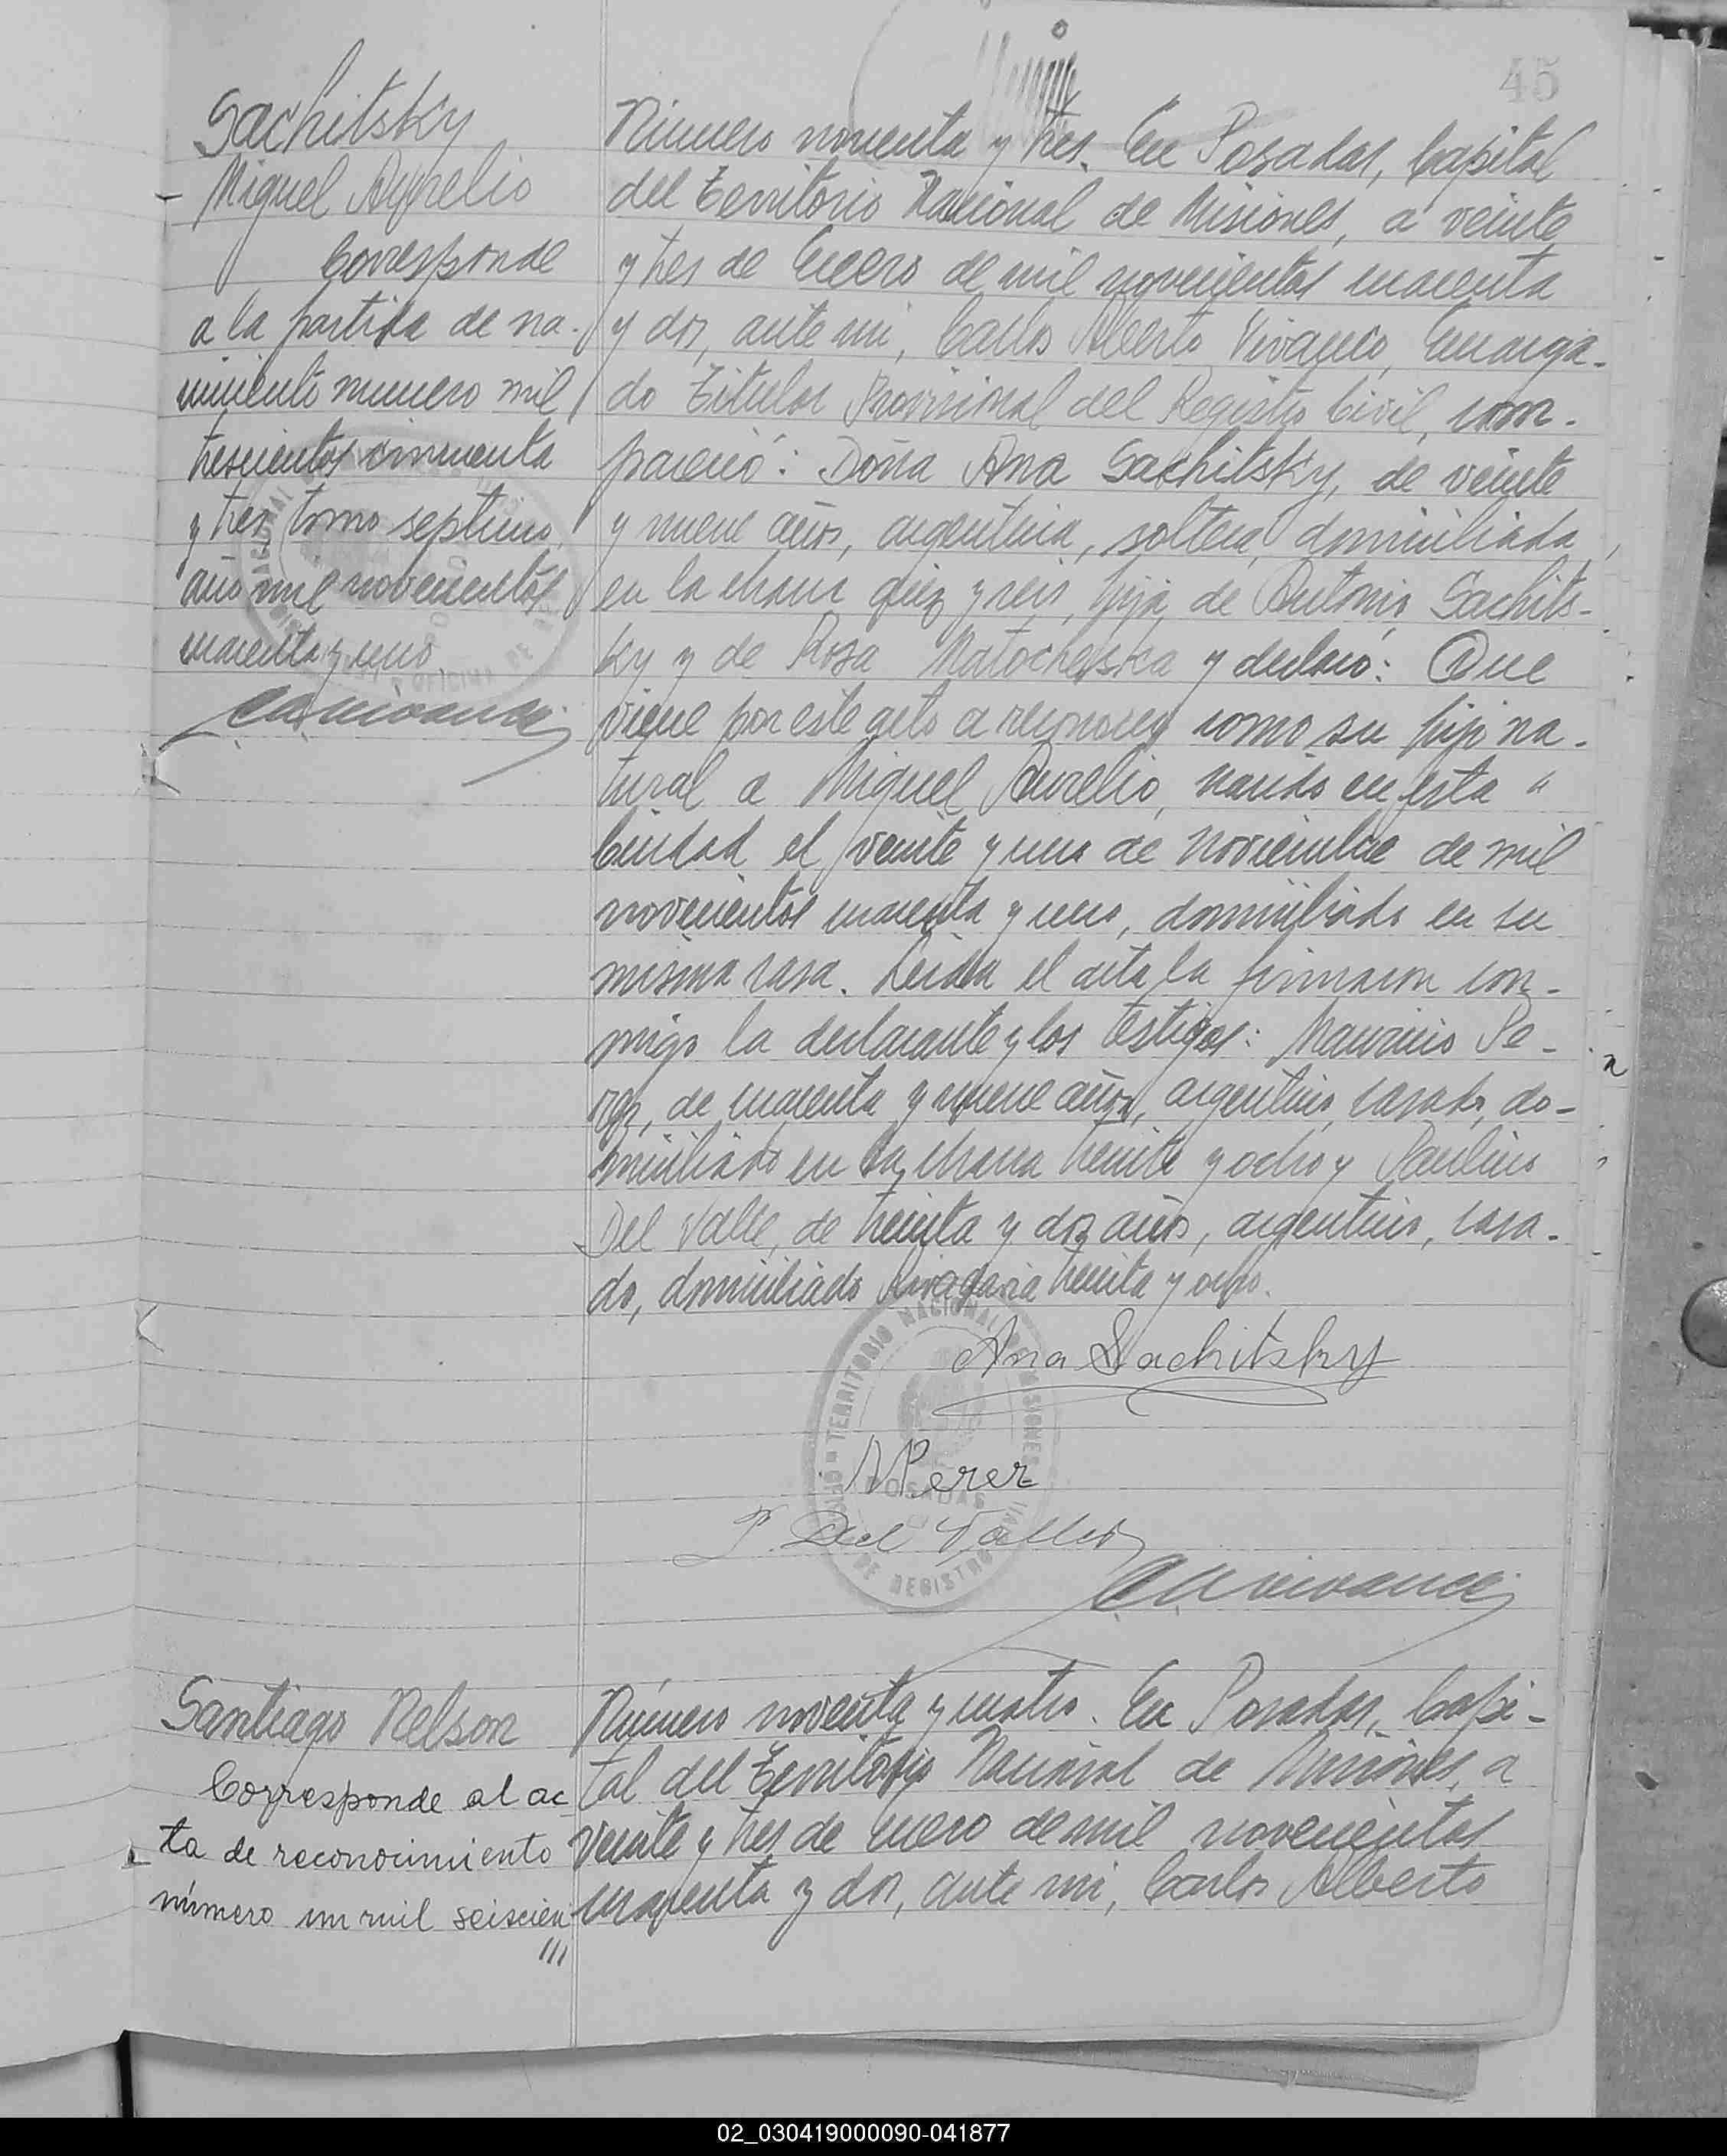 45
Sachitsky
Miguel Aurelio
Corresponde
a la partida de na-
cimiento numero mil
trescientos cincuenta
y tres tomo septimo,
año mil novecientos
cuarenta y uno.
Número noventa y tres. En Posadas, Capital
del Territorio Nacional de Misiones, a veinte
y tres de Enero de mil novecientos cuarenta
y dos, ante mi, Carlos Alberto Vivanco, Encarga-
do Titular Provisional del Registro Civil, com-
pareció: Doña Ana Sachitsky, de veinte
y nueve años, argentina, soltera, domiciliada
en la chacra diez y seis, hija de Antonio Sachits-
ky y de Rosa Matochevska y declaró: Que
viene por este acto a reconocer como su hijo na-
tural a Miguel Aurelio, nacido en esta "
Ciudad el veinte y uno de Noviembre de mil
novecientos cuarenta y uno, domiciliado en su
misma casa. Leida el acta la firmaron con-
migo la declarante y los testigos: Mauricio Pe-
rez, de cuarenta y nueve años, argentino, casado, do-
miciliado en la chacra treinta y ocho y Paulino
Del Valle, de treinta y dos años, argentino, casa-
do, domiciliado Rivadavia treinta y ocho.
Ana Sachitsky
MPerez
P. Del Valle
CAVivanco
TERRITORIO NACIONAL DE MISIONES
POSADAS
DE REGISTRO CIVIL
Santiago Nelson
Corresponde al ac
ta de reconocimiento
número un mil seiscien
///
Número noventa y cuatro. En Posadas, Capi-
tal del Territorio Nacional de Misiones, a
veinte y tres de Enero de mil novecientos
cuarenta y dos, ante mi, Carlos Alberto
02_030419000090-041877